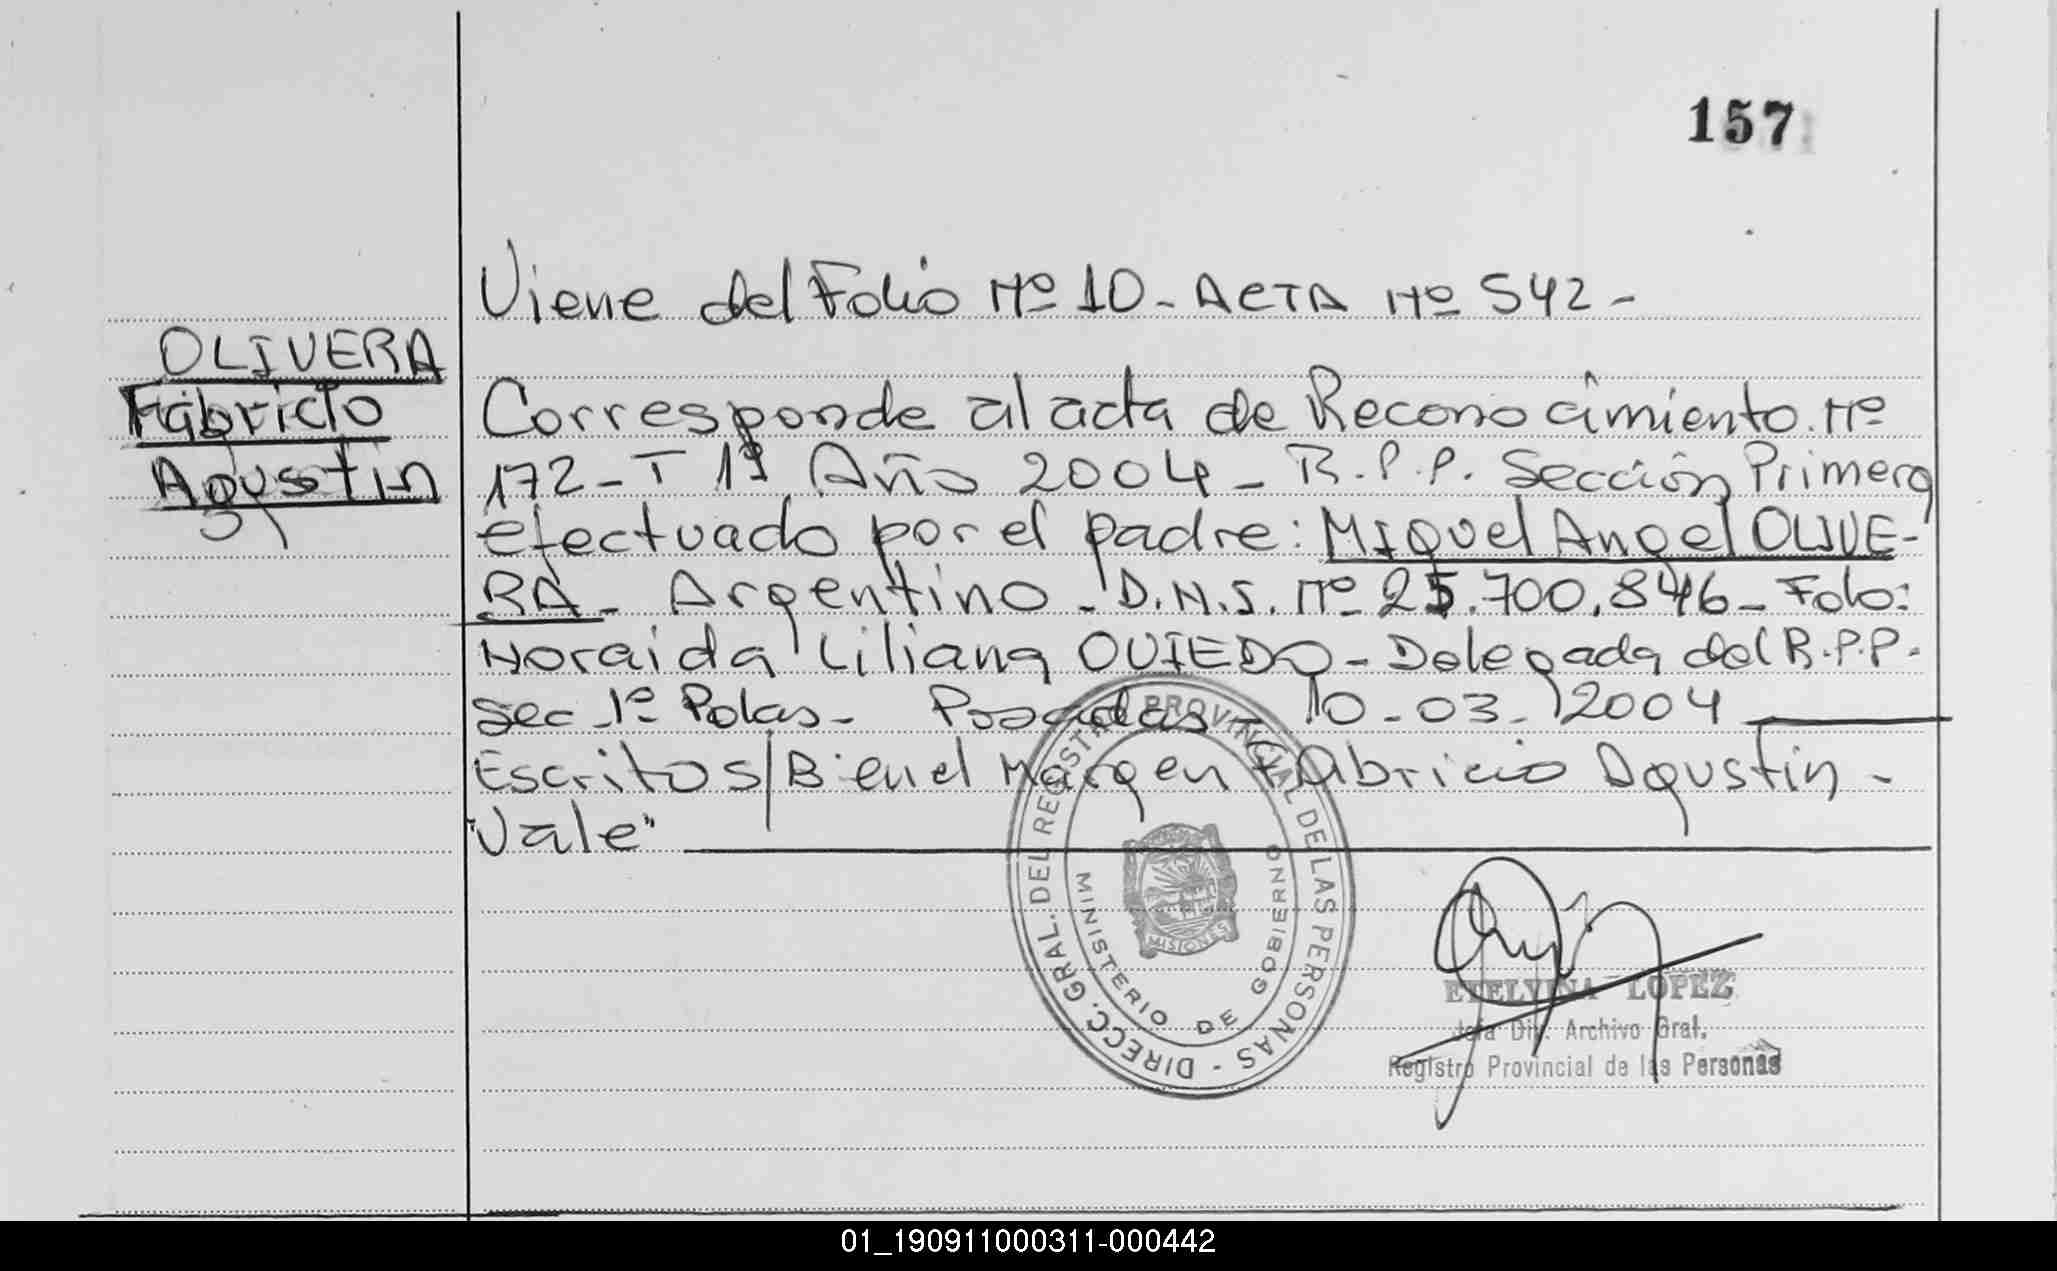 157
Viene del Folio Nº 10 - ACTA Nº 542 -
OLIVERA
Fabricio
Agustin
Corresponde al acta de Reconocimiento. Nº
172 - T 1º Año 2004 - R.P.P. Sección Primera
efectuado por el padre: Miguel Angel OLIVE-
RA - Argentino - D.N.I. Nº 25.700.846 - Fdo:
Noraida Liliana OVIEDO - Delegada del R.P.P.
Sec 1º Pdas - Posadas - 10-03-2004
Escritos S/B: en el Margen Fabricio Agustin -
"Vale"
DIRECC. GRAL. DEL REGISTRO PROVINCIAL DE LAS PERSONAS -
MINISTERIO DE GOBIERNO
MISIONES
ETELVINA LOPEZ
Jefa Div. Archivo Gral.
Registro Provincial de las Personas
01_190911000311-000442